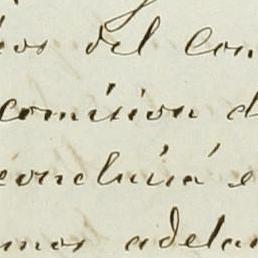 ios del con
comision d
concluirá e
mos adelan